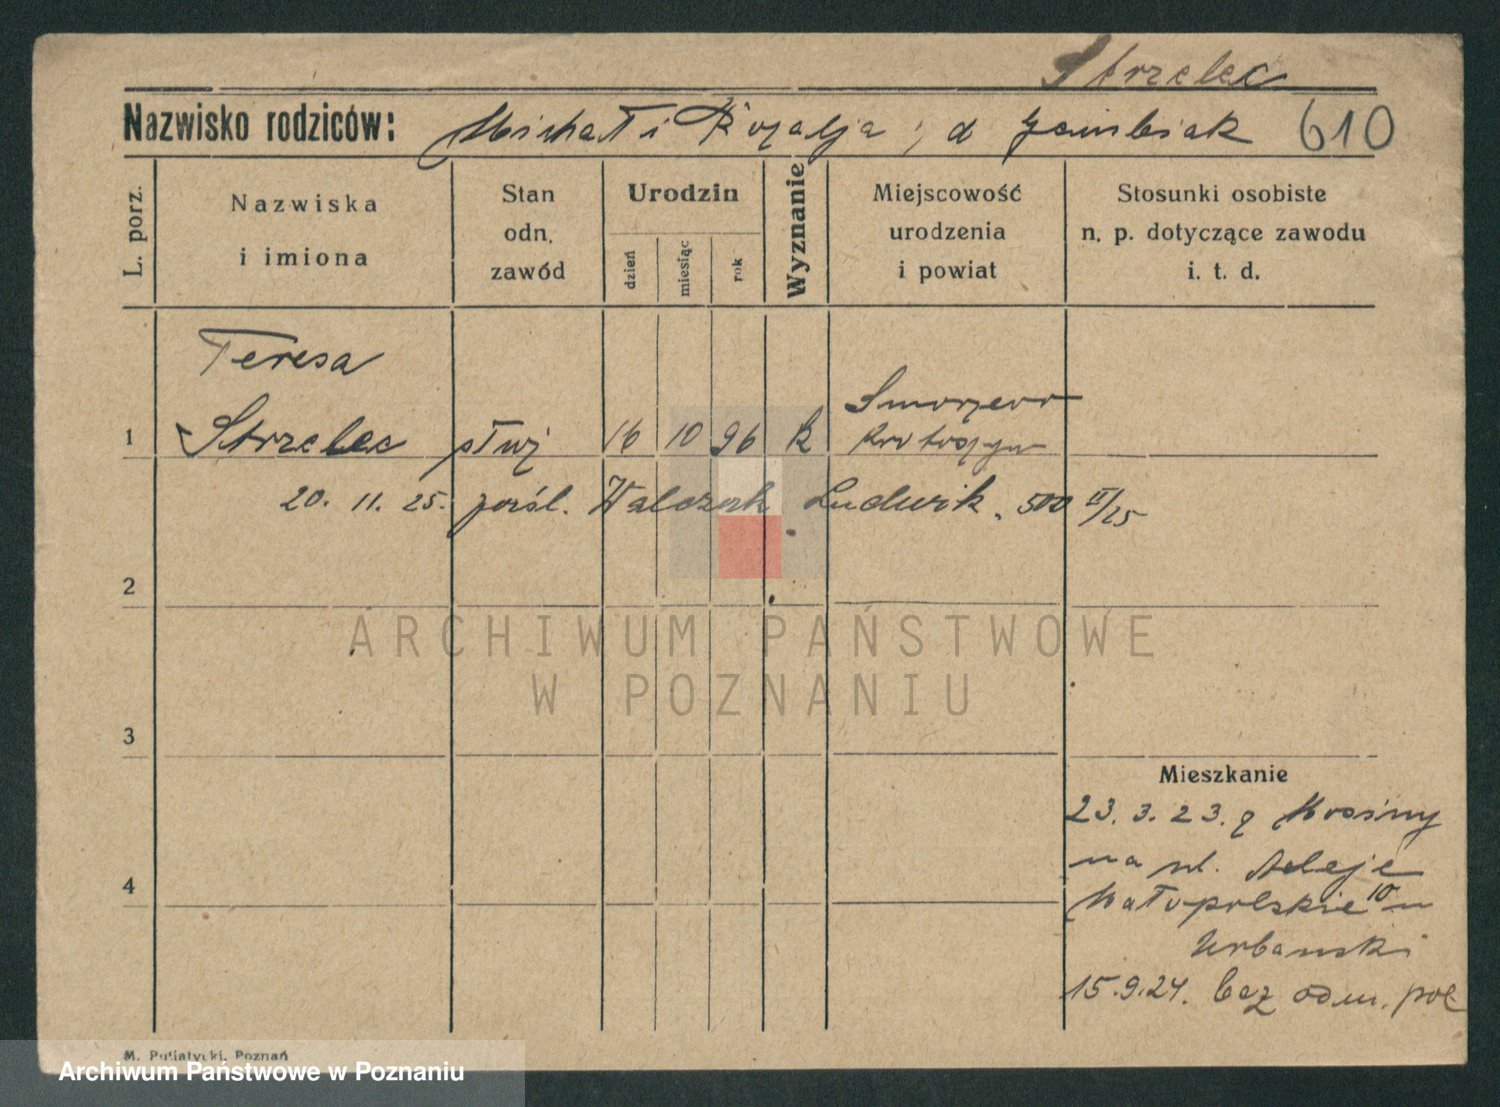 Strzelec
Nazwisko rodziców: Michał i Rozalja, d 610
L. porz.
Nazwiska
i imiona
Stan
odn.
zawód
Urodzin
dzień
miesiąc
rok
Wyznanie
Miejscowość
urodzenia
i powiat
Stosunki osobiste
n. p. dotyczące zawodu
i. t. d.
Teresa
1 Strzelec służ 16 10 96 k Smorzewo
Krotoszyn
20. 11. 25. pośl. Walczak Ludwik. 500 II/25
2
ARCHIWUM PAŃSTWOWE
W POZNANIU
3
Mieszkanie
23. 3. 23. z Mosiny
na ul. Aleje
4
Małopolskie 10 u
Urbanski
15.9.24. bez odm. pol
M. Putiatycki, Poznań
Archiwum Państwowe w Poznaniu